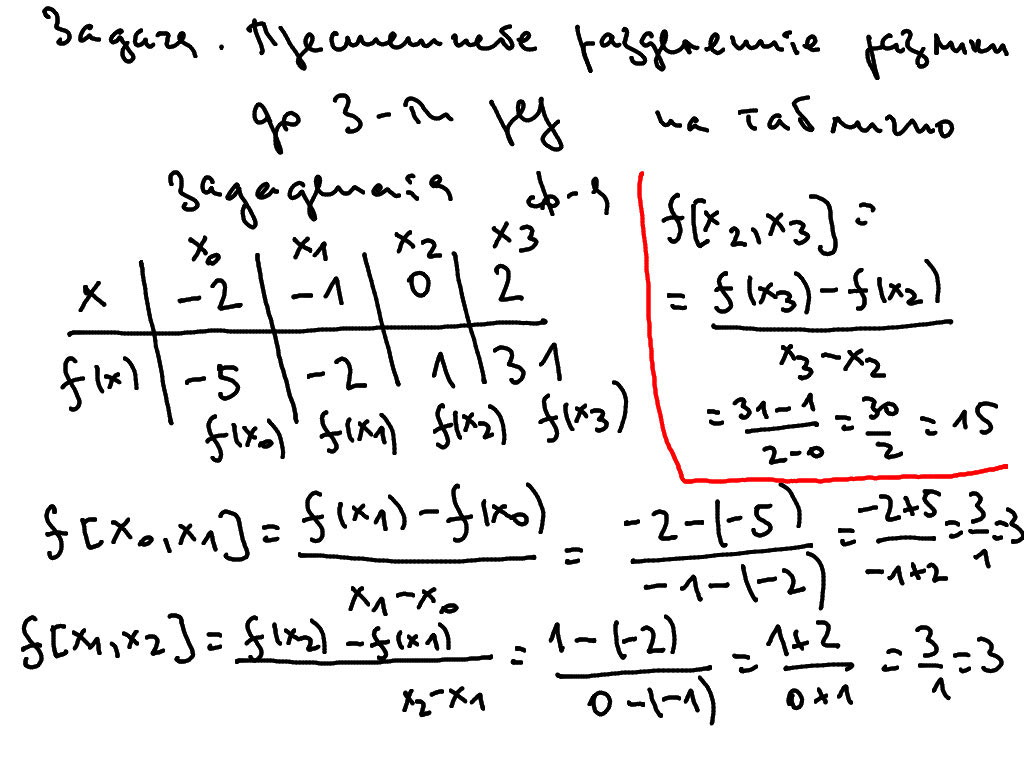 Задача. Пресметнете разделените разлики
до 3-ти ред на таблично
зададената ф-я
x₀ x₁ x₂ x₃
x -2 -1 0 2
f(x) -5 -2 1 31
f(x₀) f(x₁) f(x₂) f(x₃)
f[x₂,x₃] =
= f(x₃)-f(x₂) / x₃-x₂
= 31-1 / 2-0 = 30/2 = 15
f[x₀,x₁] = f(x₁)-f(x₀) / x₁-x₀ = -2-(-5) / -1-(-2) = -2+5 / -1+2 = 3/1 = 3
f[x₁,x₂] = f(x₂)-f(x₁) / x₂-x₁ = 1-(-2) / 0-(-1) = 1+2 / 0+1 = 3/1 = 3